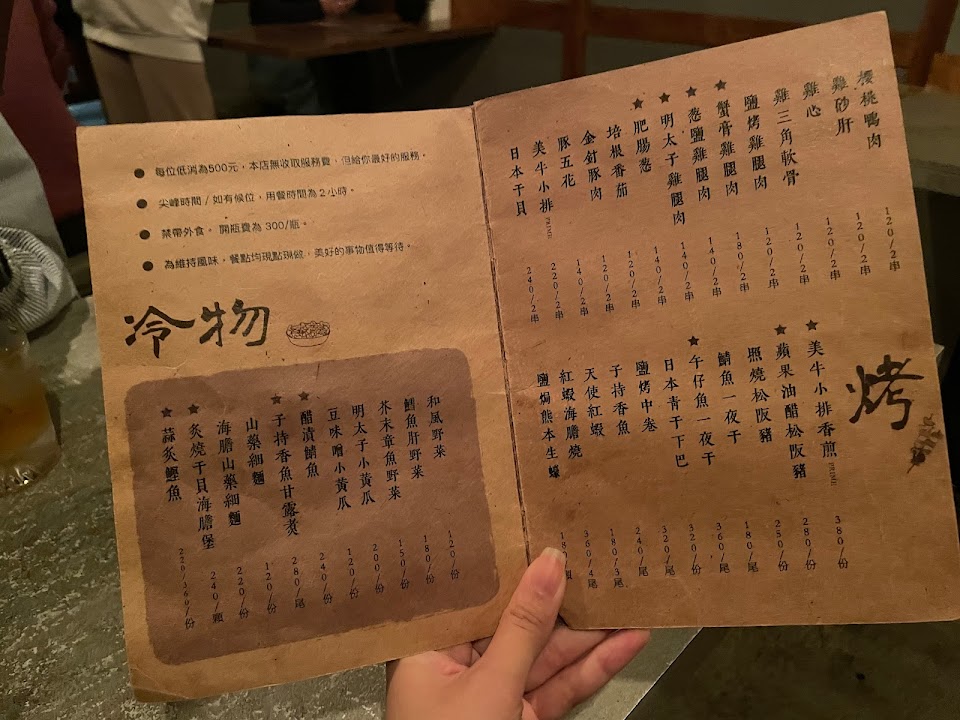 每位低消為500元，本店無收取服務費，但給你最好的服務。
尖峰時間 / 如有候位，用餐時間為 2 小時。
禁帶外食。 開瓶費為 300/瓶。
為維持風味，餐點均現點現做，美好的事物值得等待。
冷物
和風野菜 120/份
鱈魚肝野菜 180/份
芥末章魚野菜 150/份
明太子小黃瓜 200/份
豆味噌小黃瓜 120/份
★ 醋漬鯖魚 240/份
★ 子持香魚甘露煮 280/尾
山藥細麵 120/份
海膽山藥細麵 220/份
★ 炙燒干貝海膽堡 240/顆
★ 蒜炙鰹魚 220/360/份
烤
櫻桃鴨肉 120/2串
雞砂肝 120/2串
雞心 120/2串
雞三角軟骨 120/2串
鹽烤雞腿肉 120/2串
★ 蟹膏雞腿肉 180/2串
★ 蔥鹽雞腿肉 140/2串
★ 明太子雞腿肉 140/2串
★ 肥腸蔥 140/2串
培根番茄 120/2串
金針豚肉 120/2串
豚五花 140/2串
美牛小排PRIME 220/2串
日本干貝 240/2串
★ 美牛小排香煎PRIME 380/份
★ 蘋果油醋松阪豬 280/份
照燒松阪豬 250/份
鯖魚一夜干 180/尾
★ 午仔魚一夜干 360/尾
日本青干下巴 320/份
鹽烤中卷 320/尾
子持香魚 240/尾
天使紅蝦 180/3尾
紅蝦海膽燒 360/4尾
鹽焗熊本生蠔 顆